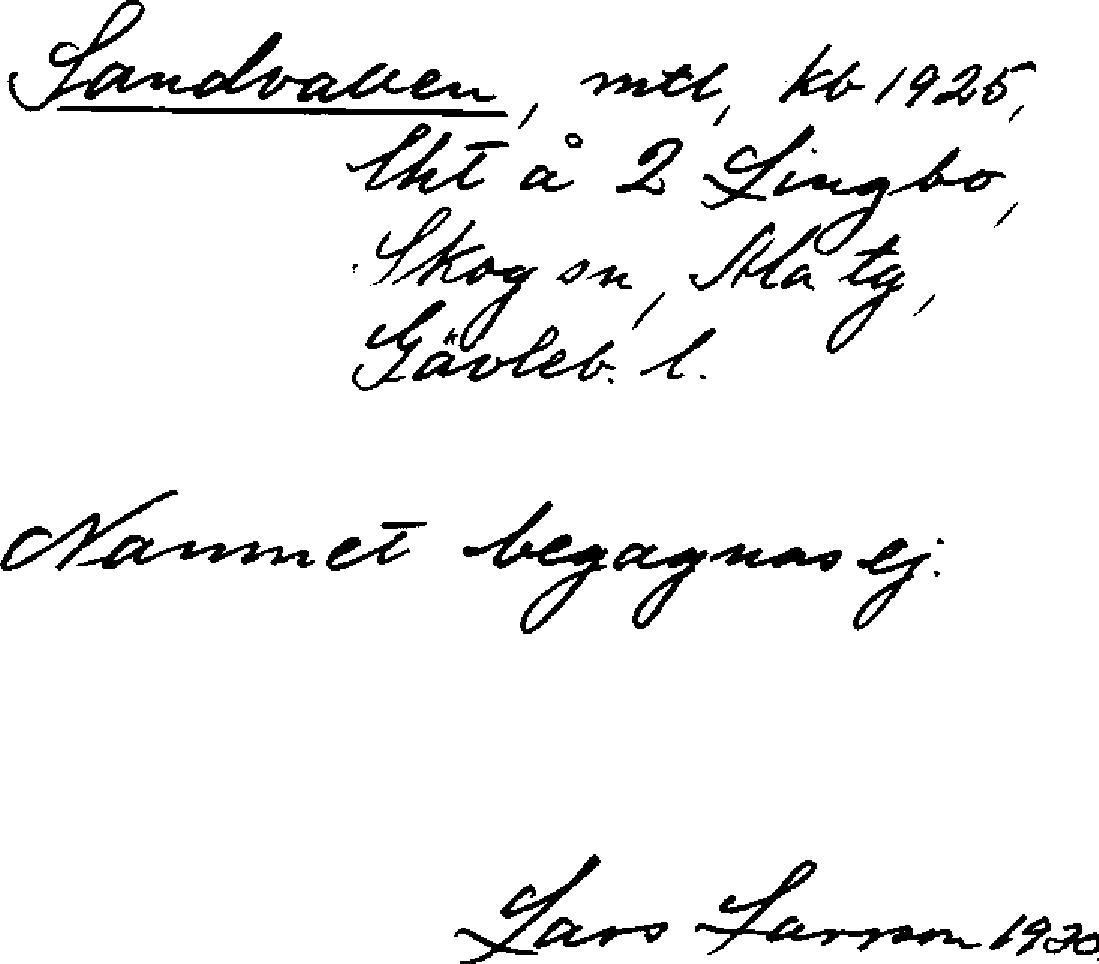 Sandvallen, mtl, kb 1925,
lht å 2 Lingbo,
Skog sn, Ala tg,
Gävleb. l.
Namnet begagnas ej.
Lars Larsson 1930.